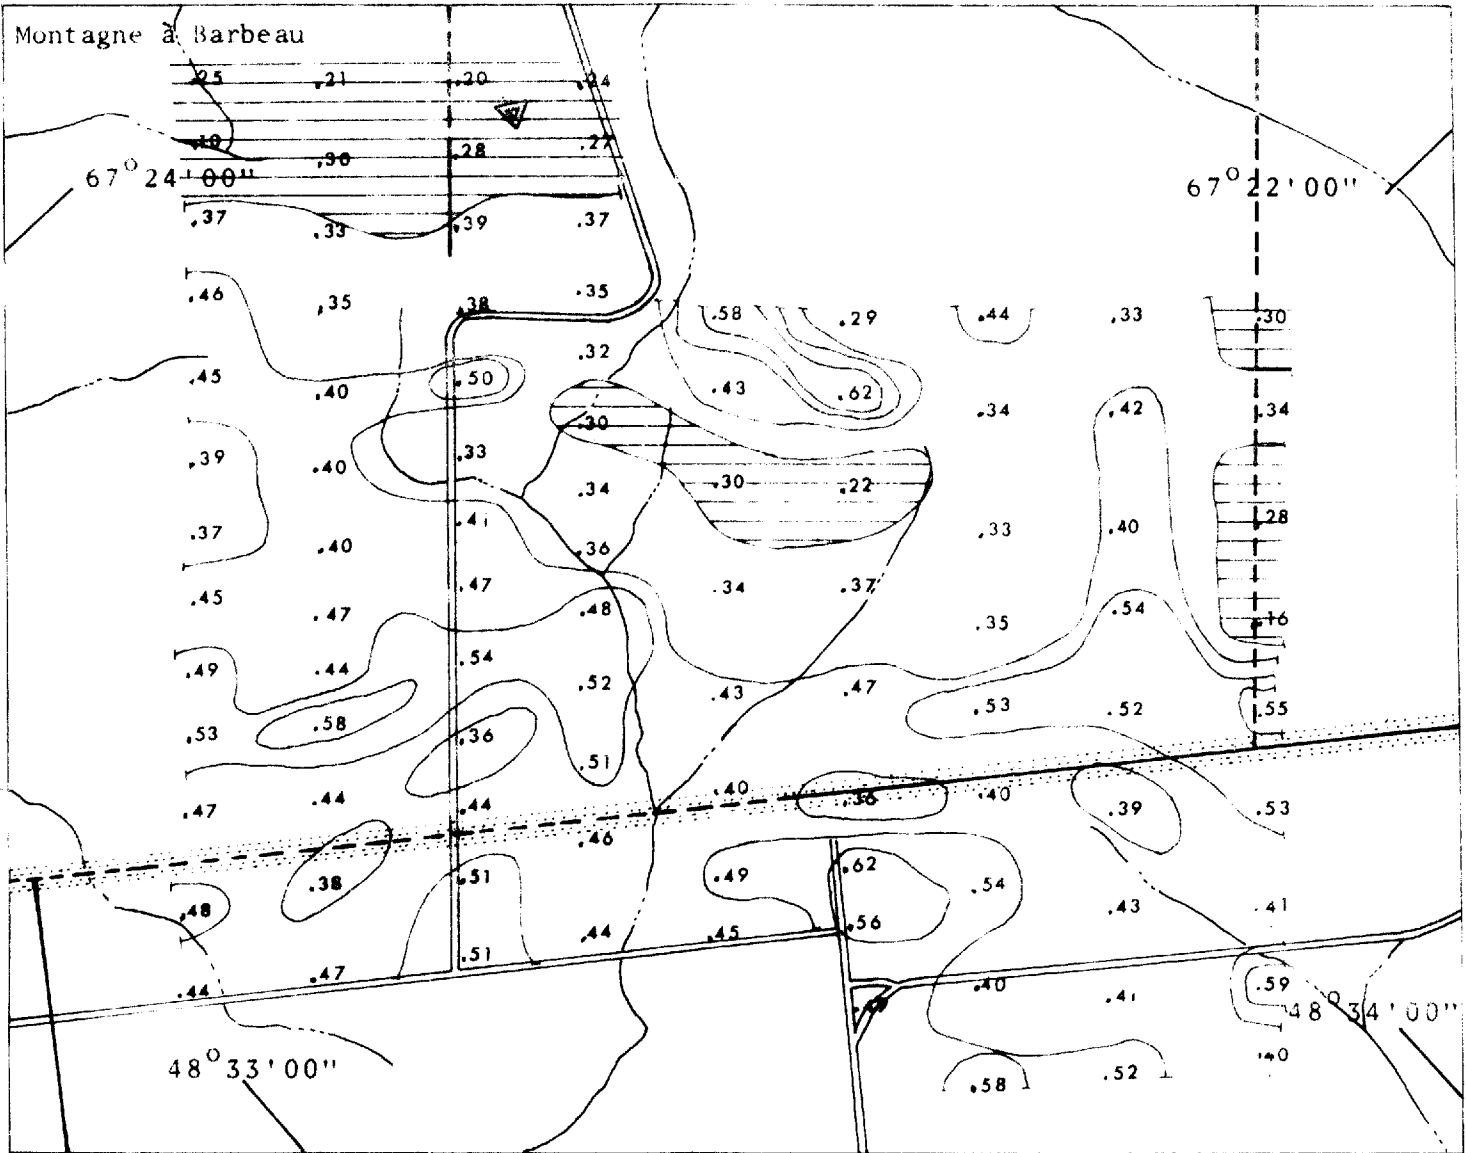 Montagne à Barbeau
.25 .21 .20 .24
.10 .30 .28 .27
67°24'00" 67°22'00"
.37 .33 .39 .37
.46 .35 .38 .35 .58 .29 .44 .33 .30
.32
.45 .40 .50 .43 .62 .34 .42 .34
.30
.39 .40 .33 .34 .30 .22
.37 .40 .41 .36 .33 .40 .28
.45 .47 .47 .48 .34 .37 .35 .54 .16
.49 .44 .54 .52 .43 .47
.53 .58 .36 .51 .53 .52 .55
.47 .44 .44 .40 .36 .40 .39 .53
.46
.48 .38 .51 .49 .62 .54
.44 .45 .56 .43 .41
.44 .47 .51 .40 .41 .59
48°34'00"
48°33'00" .58 .52 .40